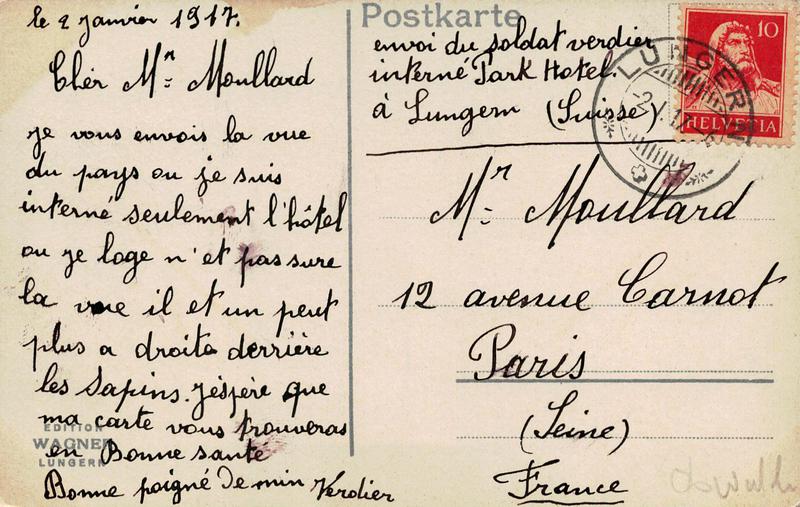 le 2 janvier 1917.
Chér Mr Moullard
je vous envois la vue
du pays ou je suis
interné seulement l'hôtel
ou je loge n'et pas sure
la vue il et un peut
plus a droite derrière
les Sapins. j'éspère que
ma carte vous trouveras
en Bonne santé
Bonne poigné de min Verdier
EDITION
WAGNER
LUNGERN
Postkarte
envoi du soldat verdier
interné Park Hotel.
à Lungern (Suisse)
10
HELVETIA
LUNGERN
-2.I.17.-6
Mr Moullard
12 avenue Carnot
Paris
(Seine)
France